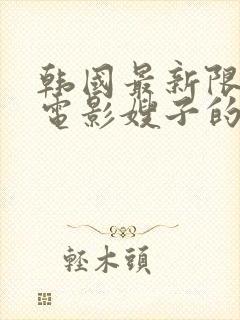 韩国最新限
电影嫂子的
輕木頭